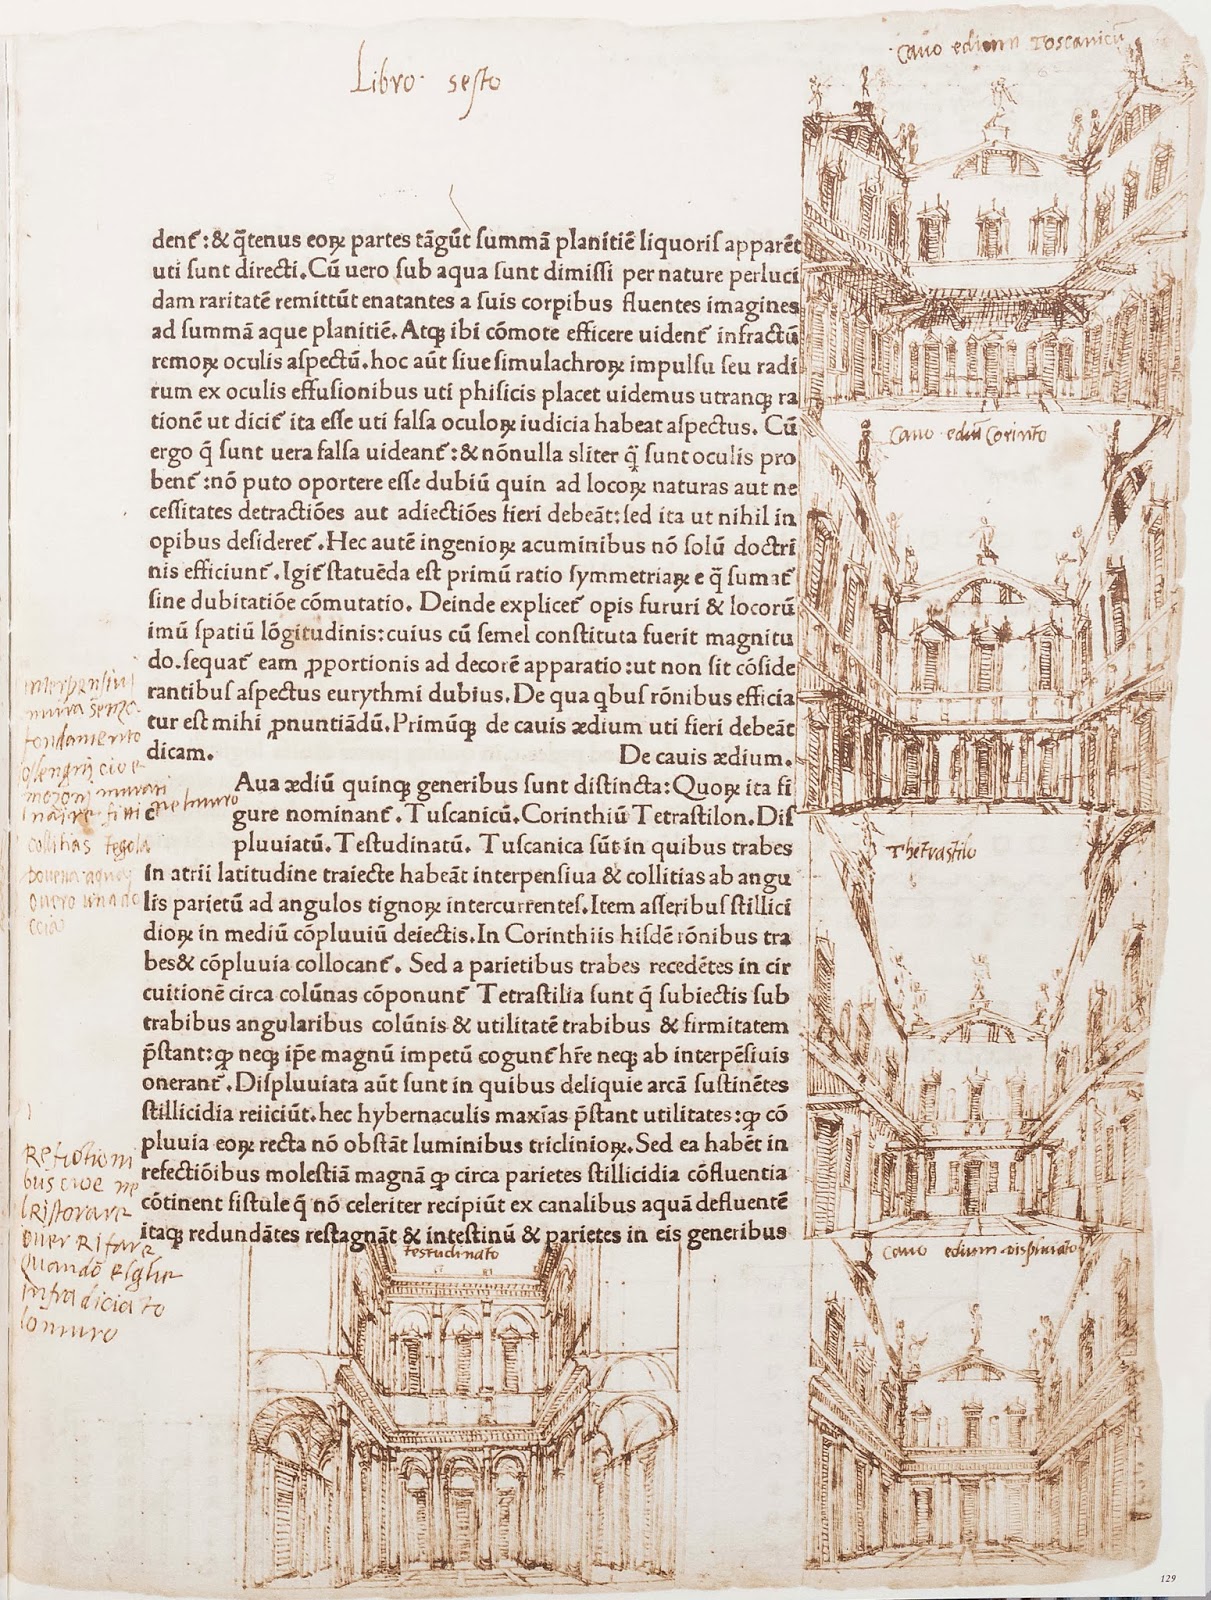 Libro sesto
Cavo edium Toscanicũ
dent᷒: & q̃tenus eoꝝ partes tãgũt summã planitiẽ liquoris apparẽt
uti sunt directi. Cũ uero sub aqua sunt dimissi per nature perluci
dam raritatẽ remittũt enatantes a suis corpibus fluentes imagines
ad summã aque planitiẽ. Atqꝫ ibi cõmote efficere uident᷒ infractũ
remoꝝ oculis aspectũ. hoc aũt siue simulachroꝝ impulsu seu radi
rum ex oculis effusionibus uti phisicis placet uidemus utranqꝫ ra
tionẽ ut dicit᷒ ita esse uti falsa oculoꝝ iudicia habeat aspectus. Cũ
ergo q̃ sunt uera falsa uideant᷒: & nõnulla sliter q̃ sunt oculis pro
bent᷒: nõ puto oportere esse dubiũ quin ad locoꝝ naturas aut ne
cessitates detractiões aut adiectiões fieri debeãt: sed ita ut nihil in
opibus desideret᷒. Hec autẽ ingenioꝝ acuminibus nõ solũ doctri
nis efficiunt᷒. Igit᷒ statuẽda est primũ ratio symmetriaꝝ e q̃ sumat᷒
sine dubitatiõe cõmutatio. Deinde explicet᷒ opis fururi & locorũ
imũ spatiũ lõgitudinis: cuius cũ semel constituta fuerit magnitu
do. sequat᷒ eam ꝓportionis ad decorẽ apparatio: ut non sit cõside
rantibus aspectus eurythmi dubius. De qua qbus rõnibus efficia
tur est mihi ꝓnuntiãdũ. Primũqꝫ de cauis ædium uti fieri debeãt
dicam. De cauis ædium.
c Aua ædiũ quinqꝫ generibus sunt distincta: Quoꝝ ita fi
gure nominant᷒. Tuscanicũ. Corinthiũ Tetrastilon. Dis
pluuiatũ. Testudinatũ. Tuscanica sũt in quibus trabes
in atrii latitudine traiecte habeãt interpensiua & collitias ab angu
lis parietũ ad angulos tignoꝝ intercurrentes. Item asseribus stillici
dioꝝ in mediũ cõpluuiũ deiectis. In Corinthiis hisdẽ rõnibus tra
bes & cõpluuia collocant᷒. Sed a parietibus trabes recedẽtes in cir
cuitionẽ circa colũnas cõponunt᷒ Tetrastilia sunt q̃ subiectis sub
trabibus angularibus colũnis & utilitatẽ trabibus & firmitatem
p̃stant: ꝙ neqꝫ ip̃e magnũ impetũ cogunt᷒ hr̃e neqꝫ ab interpẽsiuis
onerant᷒. Displuuiata aũt sunt in quibus deliquie arcã sustinẽtes
stillicidia reiiciũt. hec hybernaculis maxĩas p̃stant utilitates: ꝙ cõ
pluuia eoꝝ recta nõ obstãt luminibus triclinioꝝ. Sed ea habẽt in
refectiõibus molestiã magnã ꝙ circa parietes stillicidia cõfluentia
cõtinent fistule q̃ nõ celeriter recipiũt ex canalibus aquã defluentẽ
itaqꝫ redundãtes restagnãt & intestinũ & parietes in eis generibus
interpensiui
mura senza
fondamento
cioe
collitias tegola
overo
Refictioni
bus cioe ne
ristorare
over Rifare
Quando
infradiciato
lo muro
Cavo ediũ Corinto
Thetrastilo
Cavo edium displuvato
testudinato
129